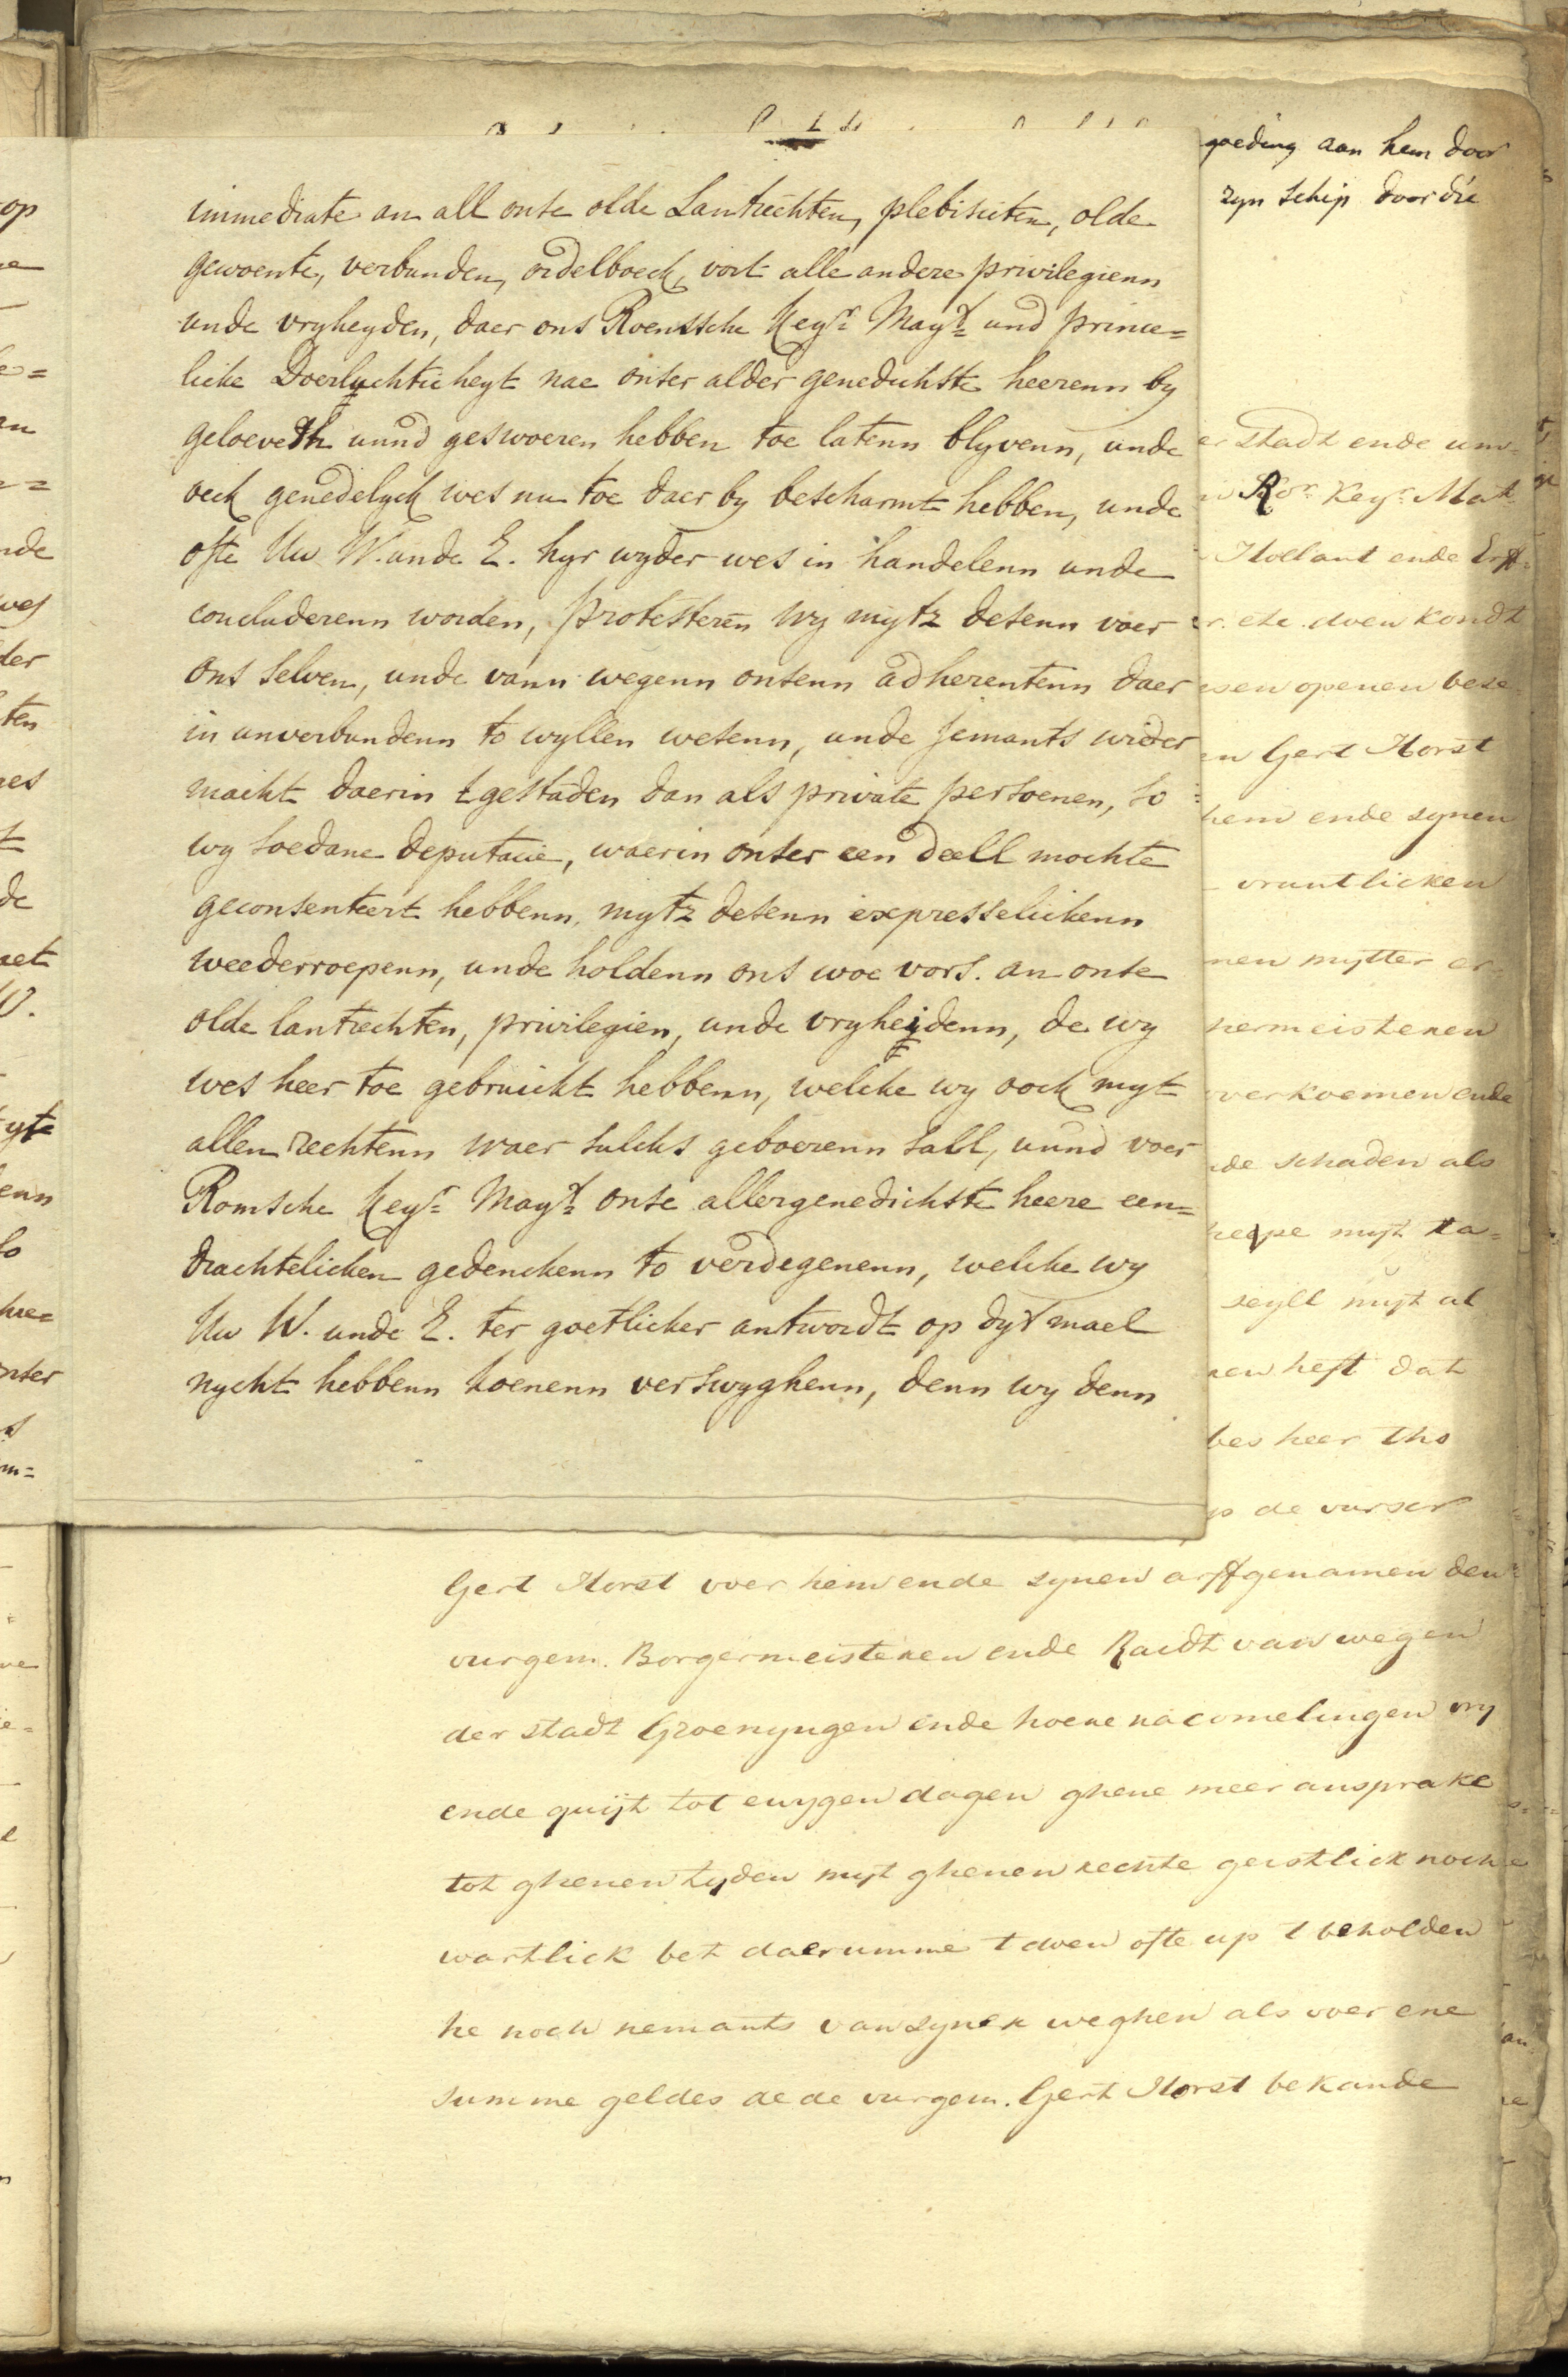 immediate an all onse olde Lantrechten, plebisciten, olde
gewoente, verbunden, ordelboeck, vort alle andere privilegienn
unde vryheyden, daer ons Roemssche Keyr. Mayt. und prince=
licke Doerluchticheyt nae onser alder genedichste heerenn by
geloeveth unnd geswoeren hebben toe latenn blyvenn, unde
oeck genedelyck wes nu toe daer by bescharmt hebben, unde
ofte Uw W. unde E. hyr wyder wes in handelenn unde
concluderenn worden, protesteren wy mytz desenn voer
ons selven, unde vann wegenn onsenn adherentenn daer
in unverbundenn to wyllen wesenn, unde jemants wider
macht daerin t gestaden dan als private persoenen, so
wy soedane deputacie, waerin onser een deell mochte
geconsenteert hebbenn, mytz desenn expresselickenn
weederroepenn, unde holdenn ons woe vors. an onse
olde lantrechten, privilegien, unde vryheydenn, de wy
wes heer toe gebruickt hebbenn, welcke wy oock myt
allen rechtenn waer sulcks geboerenn sall, unnd voer
Romsche Keyr. Mayt. onse allergenedichste heere een=
drachtelicken gedenckenn to verdegenenn, welcke wy
Uw W. unde E. ter goetlicker antwordt op dyt mael
nycht hebbenn koenenn verswyghenn, denn wy denn
goeding aan hem door
zyn schip door die
er stadt ende um=
Ror. Keyr. Mat.
Hollant ende Erff=
r. etc. doen kondt
esen openen bese=
en Gert Horst
hem ende synen
vruntlicken
nen mytter er=
hermeisteren
overkoemen ende
nde schaden als
heepe myt ta=
seyll myt al
nen heft dat
bes heer tho
is de vurscr
Gert Horst voer hem ende synen arffgenamen den
vurgem. Borgermeisteren ende Raidt van wegen
der stadt Groenyngen ende hoere nacomelingen vry
ende quijt tot ewygen dagen ghene meer ansprake
tot ghenen tyden myt ghenen rechte geistlick noch
wartlick bet daerumme t doen ofte up t beholden
he noch nemants van syner weghen als voer ene
summe geldes de de vurgem. Gert Horst bekande